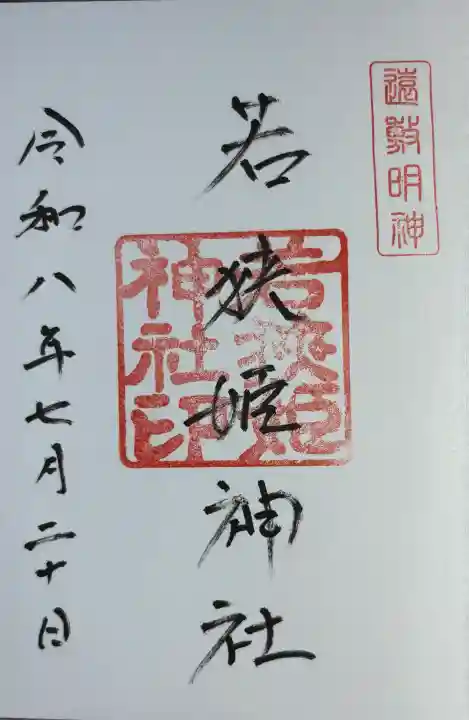 遠敷明神
若狭姫神社
若狭姫神社印
令和八年七月二十日